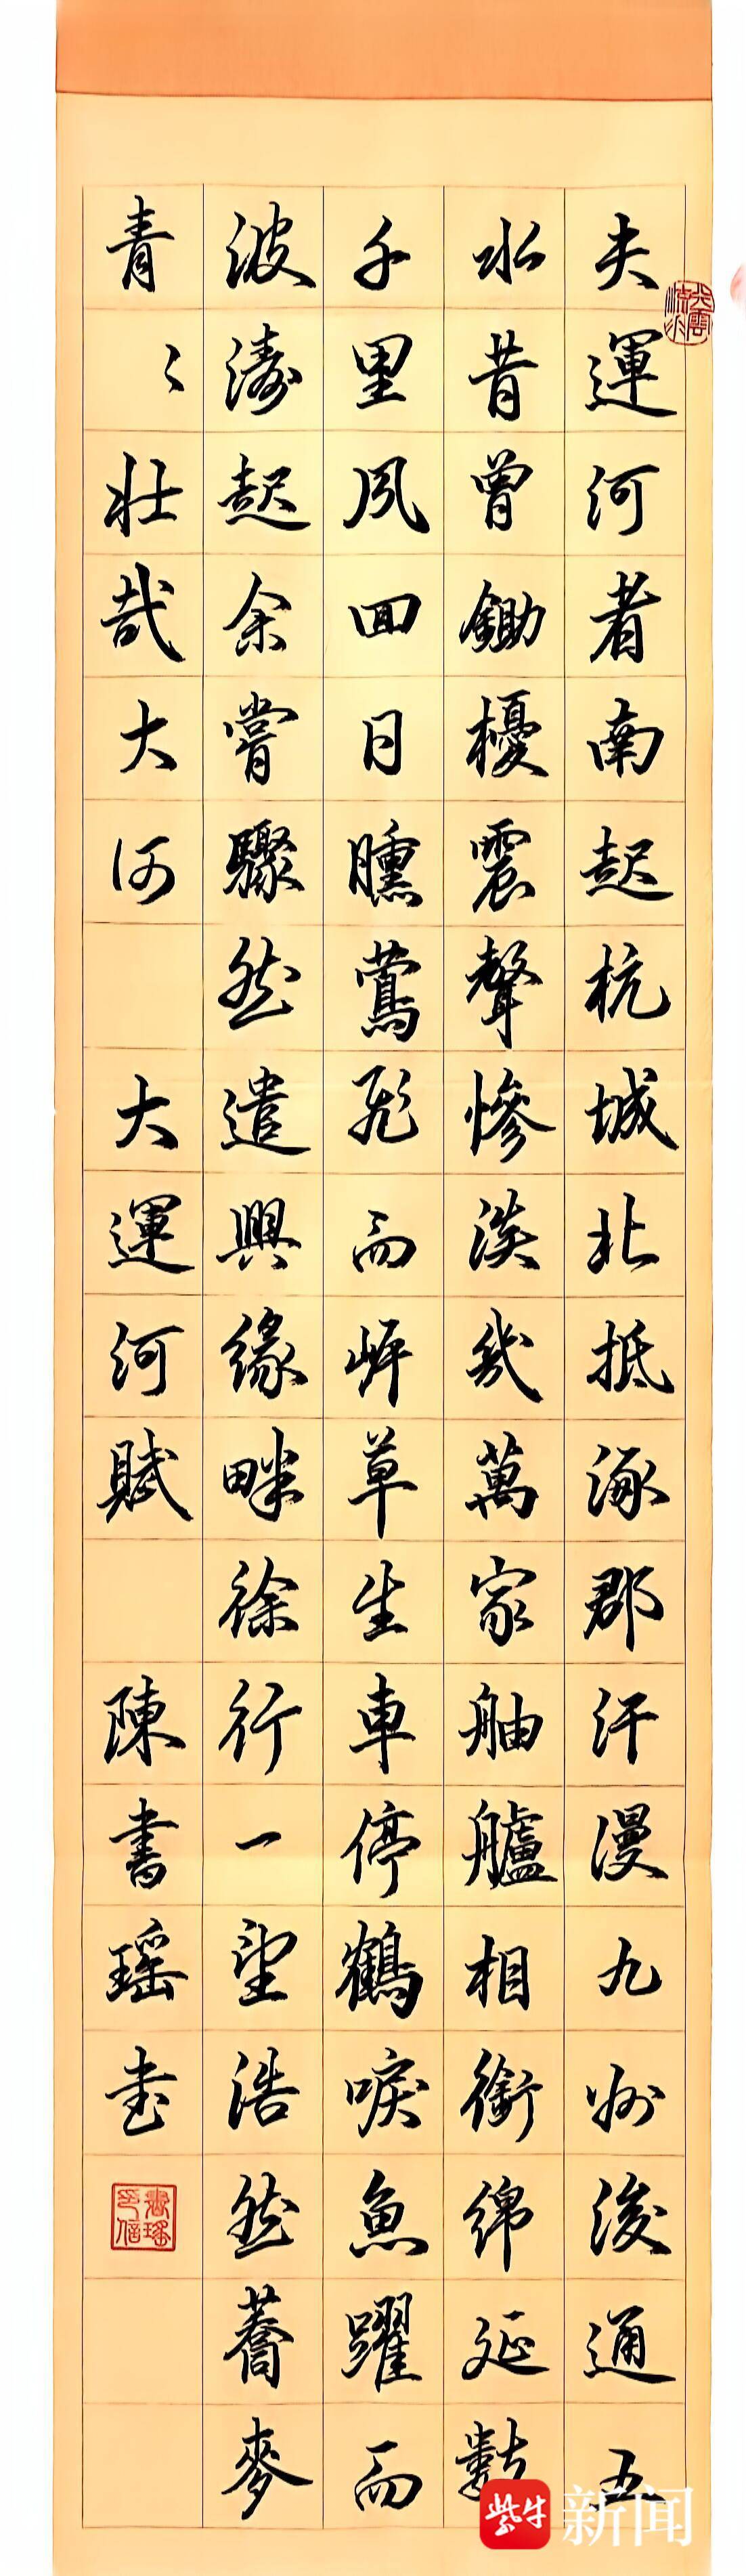 夫運河者南起杭城北抵涿郡汗漫九州浚通五
水昔曾鋤櫌震聲慘淡幾萬家舳艫相銜綿延數
千里夙回日曛鶯飛而岸草生車停鶴唳魚躍而
波濤起余嘗驟然遣興緣畔徐行一望浩然蕎麥
青〻壯哉大河 大運河賦 陳書瑤書
書瑤印信
紫牛新闻